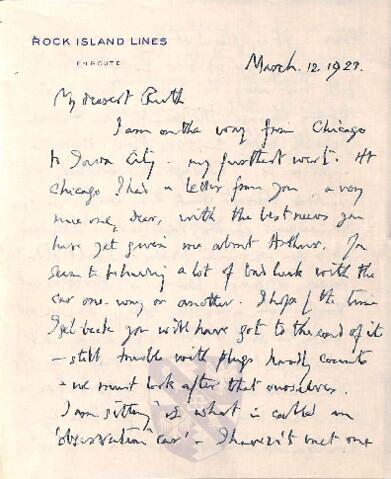 ROCK ISLAND LINES
EN ROUTE
March. 12. 1923.
My dearest Ruth
I am on the way from Chicago
to Iowa City - my furthest west. At
Chicago I had a letter from you, a very
nice one, dear, with the best news you
have yet given me about Arthur. You
seem to be having a lot of bad luck with the
car one way or another. I hope / the time
I get back you will have got to the end of it
- still trouble with plugs hardly counts
- we must look after that ourselves.
I am sitting in what is called an
'observation car' - I haven't met one